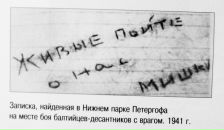 ЖИВЫЕ ПОЙТЕ
О НАС
МИШКИ
Записка, найденная в Нижнем парке Петергофа
на месте боя балтийцев-десантников с врагом. 1941 г.